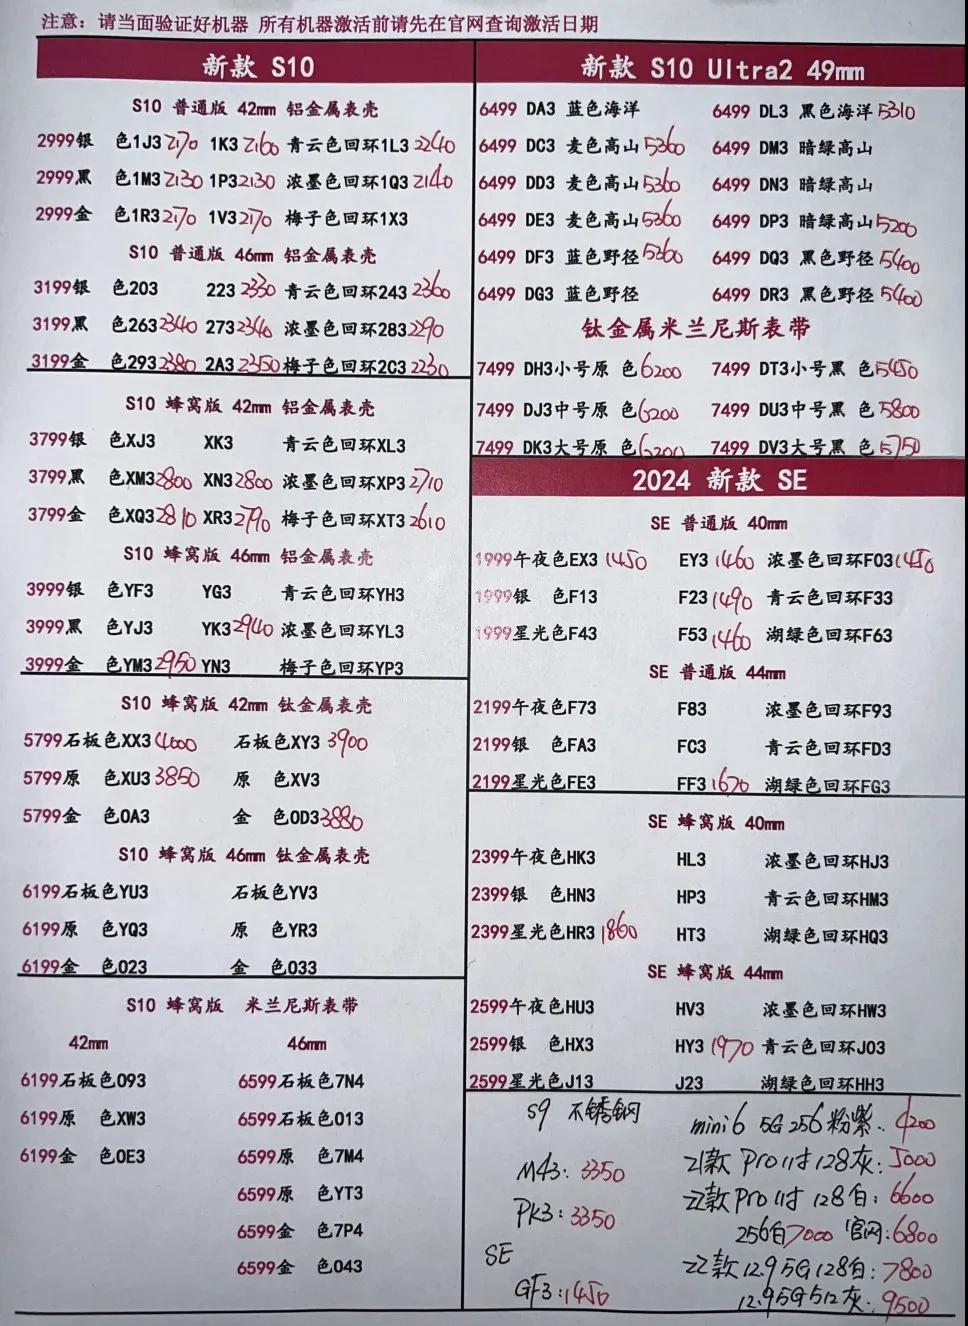 注意：请当面验证好机器 所有机器激活前请先在官网查询激活日期
新款 S10
S10 普通版 42mm 铝金属表壳
2999银 色1J3 2170 1K3 2160 青云色回环1L3 2240
2999黑 色1M3 2130 1P3 2130 浓墨色回环1Q3 2140
2999金 色1R3 2170 1V3 2170 梅子色回环1X3
S10 普通版 46mm 铝金属表壳
3199银 色203 223 2330 青云色回环243 2360
3199黑 色263 2340 273 2340 浓墨色回环283 2290
3199金 色293 2380 2A3 2350 梅子色回环2C3 2230
S10 蜂窝版 42mm 铝金属表壳
3799银 色XJ3 XK3 青云色回环XL3
3799黑 色XM3 2800 XN3 2800 浓墨色回环XP3 2710
3799金 色XQ3 2810 XR3 2790 梅子色回环XT3 2610
S10 蜂窝版 46mm 铝金属表壳
3999银 色YF3 YG3 青云色回环YH3
3999黑 色YJ3 YK3 2940 浓墨色回环YL3
3999金 色YM3 2950 YN3 梅子色回环YP3
S10 蜂窝版 42mm 钛金属表壳
5799石板色XX3 4000 石板色XY3 3900
5799原 色XU3 3850 原 色XV3
5799金 色0A3 金 色0D3 3880
S10 蜂窝版 46mm 钛金属表壳
6199石板色YU3 石板色YV3
6199原 色YQ3 原 色YR3
6199金 色023 金 色033
S10 蜂窝版 米兰尼斯表带
42mm 46mm
6199石板色093 6599石板色7N4
6199原 色XW3 6599石板色013
6199金 色0E3 6599原 色7M4
6599原 色YT3
6599金 色7P4
6599金 色043
新款 S10 Ultra2 49mm
6499 DA3 蓝色海洋 6499 DL3 黑色海洋 5310
6499 DC3 麦色高山 5360 6499 DM3 暗绿高山
6499 DD3 麦色高山 5360 6499 DN3 暗绿高山
6499 DE3 麦色高山 5360 6499 DP3 暗绿高山 5200
6499 DF3 蓝色野径 5360 6499 DQ3 黑色野径 5400
6499 DG3 蓝色野径 6499 DR3 黑色野径 5400
钛金属米兰尼斯表带
7499 DH3小号原 色 6200 7499 DT3小号黑 色 5450
7499 DJ3中号原 色 6200 7499 DU3中号黑 色 5800
7499 DK3大号原 色 6200 7499 DV3大号黑 色 5750
2024 新款 SE
SE 普通版 40mm
1999午夜色EX3 1450 EY3 1460 浓墨色回环F03 1450
1999银 色F13 F23 1490 青云色回环F33
1999星光色F43 F53 1460 湖绿色回环F63
SE 普通版 44mm
2199午夜色F73 F83 浓墨色回环F93
2199银 色FA3 FC3 青云色回环FD3
2199星光色FE3 FF3 1670 湖绿色回环FG3
SE 蜂窝版 40mm
2399午夜色HK3 HL3 浓墨色回环HJ3
2399银 色HN3 HP3 青云色回环HM3
2399星光色HR3 1860 HT3 湖绿色回环HQ3
SE 蜂窝版 44mm
2599午夜色HU3 HV3 浓墨色回环HW3
2599银 色HX3 HY3 1970 青云色回环J03
2599星光色J13 J23 湖绿色回环HH3
S9 不锈钢
M43: 3350
PK3: 3350
SE
GF3: 1450
mini6 5G 256 粉紫: 4200
21款 Pro 11寸 128灰: 5000
22款 Pro 11寸 128白: 6600
256白 7000 官网: 6800
22款 12.9 5G 128白: 7800
12.9 5G 512灰: 9500